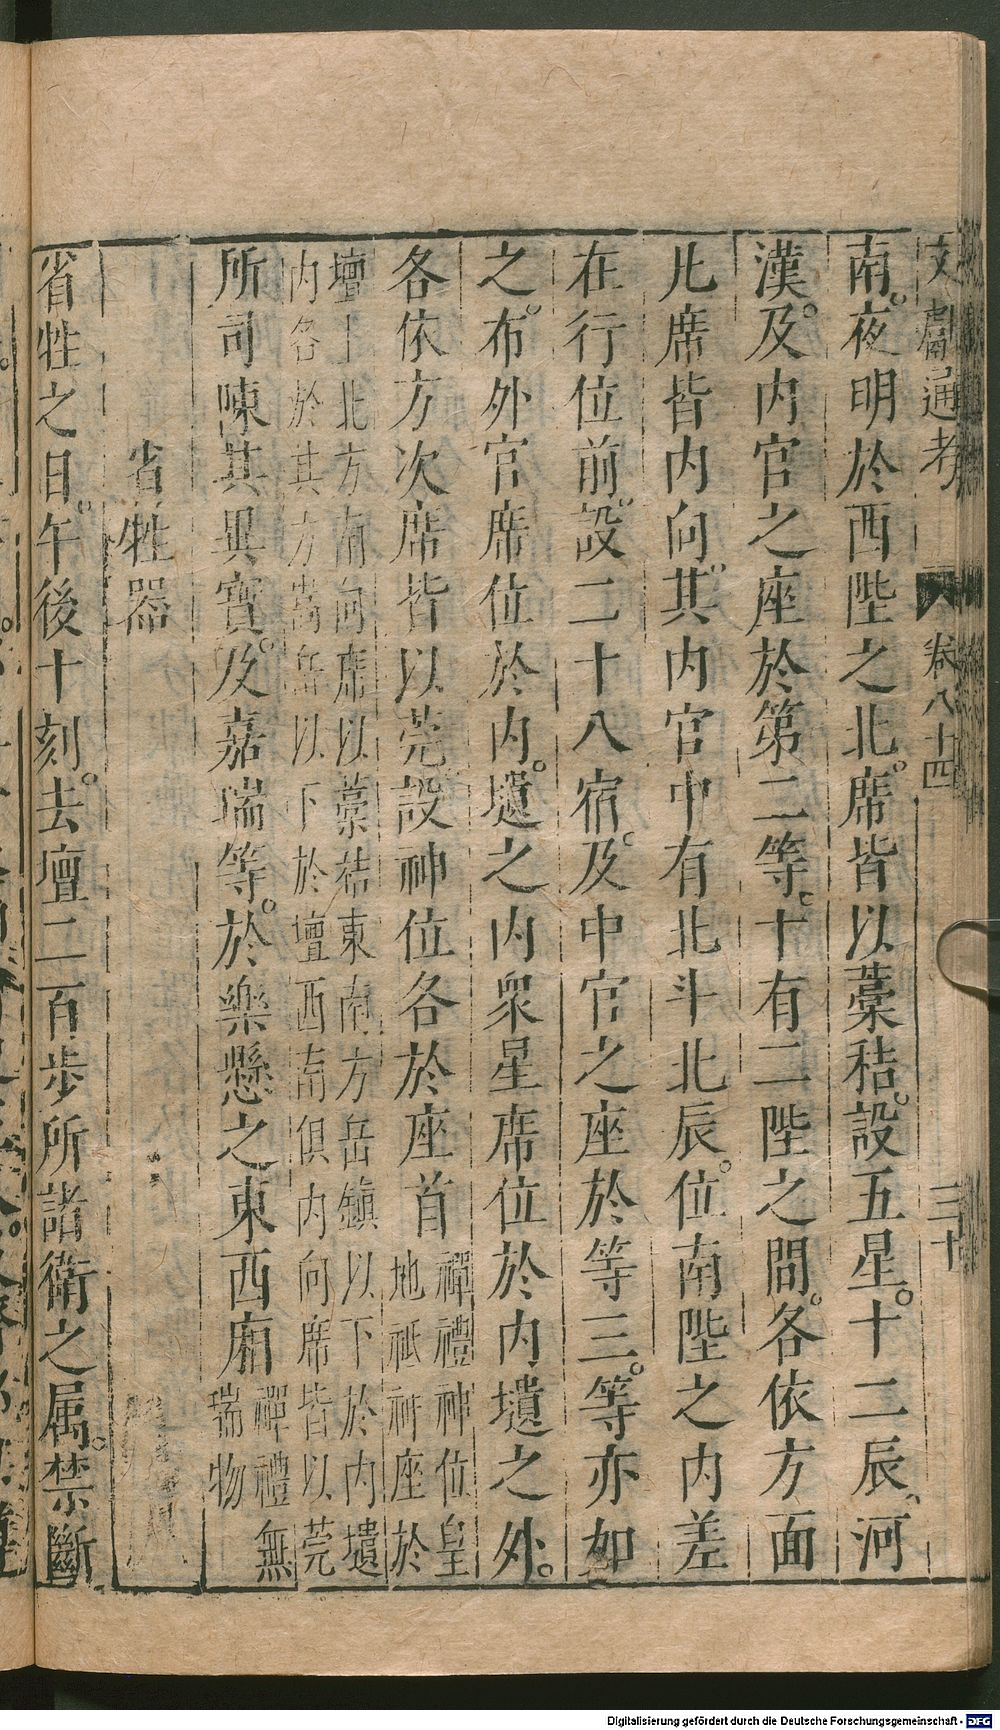 文獻通考 卷八十四 三十
南。夜明於西陛之北。席皆以藁秸。設五星。十二辰、河
漢。及内官之座於第二等。十有二陛之間。各依方面
凡席皆内向。其内官中有北斗北辰。位南陛之内差
在行位前。設二十八宿。及中官之座於等三。等亦如
之。布外官席位於内。壝之内眾星席位於内壝之外。
各依方次席皆以莞設神位各於座首禪禮神位皇
地祇祔座於
壇上北方南向席以藁秸東南方岳鎮以下於内壝
内各於其方嵩岳以下於壇西南俱内向席皆以莞
所司陳其異寶。及嘉瑞等。於樂懸之東西廂禪禮無
瑞物
省牲器
省牲之日。午後十刻。去壇二百步所諸衛之属。禁斷
Digitalisierung gefördert durch die Deutsche Forschungsgemeinschaft - DFG